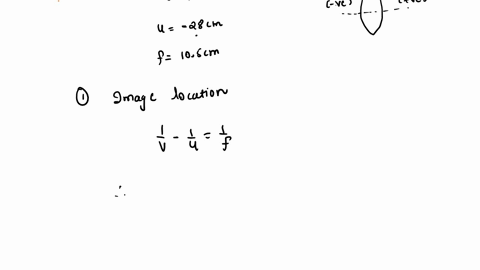 (-ve)
u = -28 cm
f = 10.6 cm
① Image location
1/v - 1/u = 1/f
∴